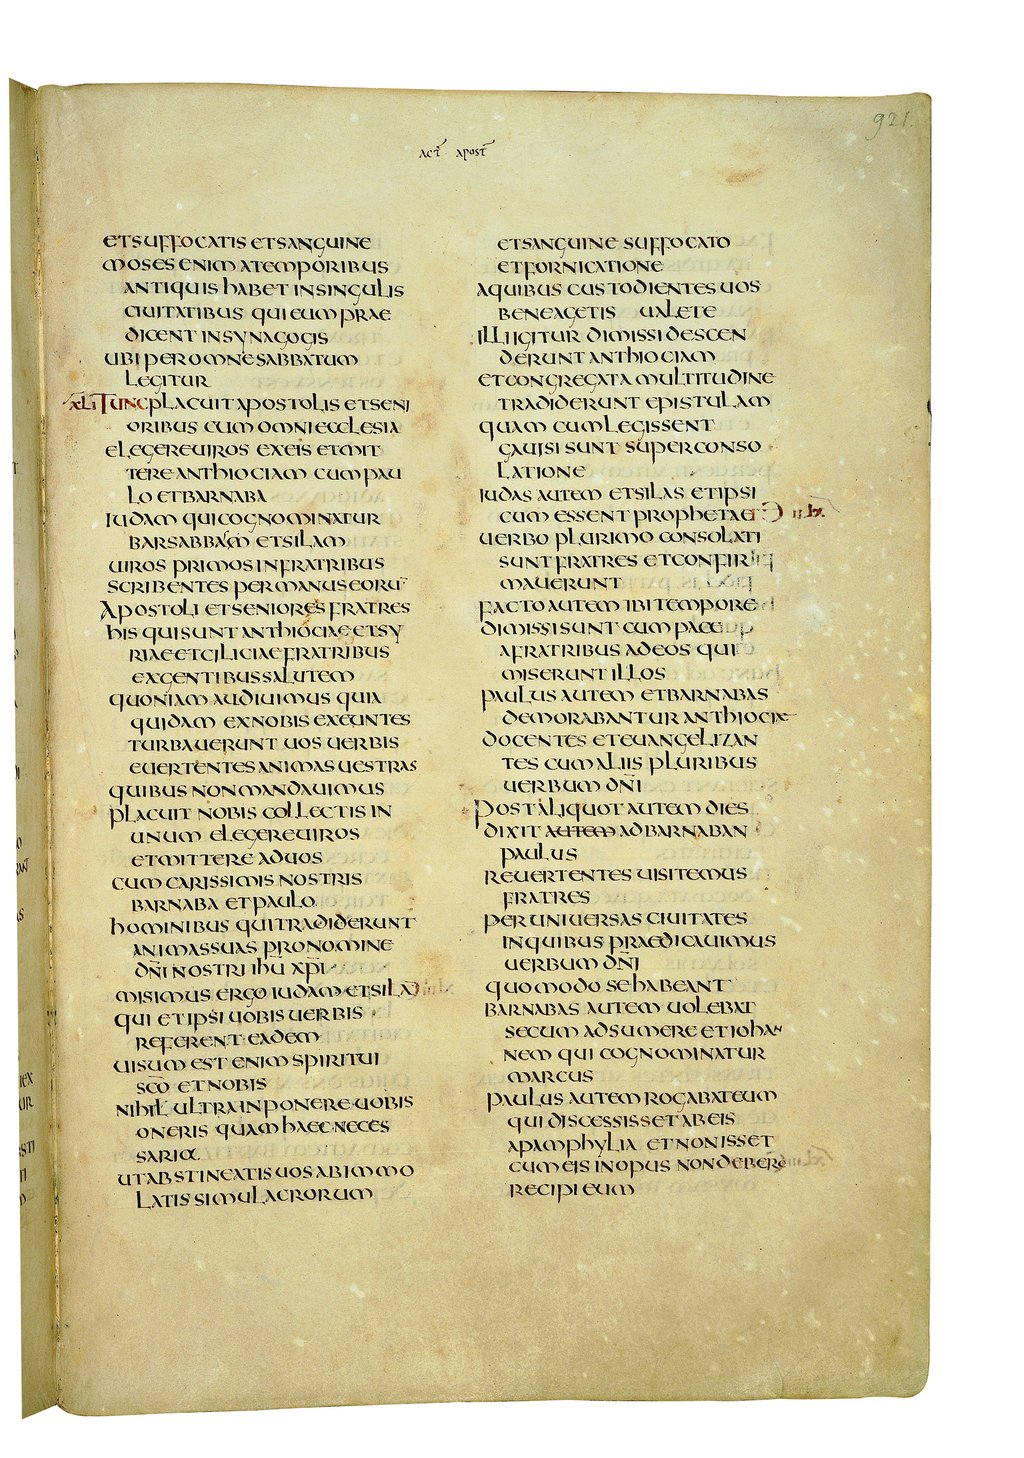 921
ACT APOST
ETSUFFOCATIS ETSANGUINE
MOSES ENIM ATEMPORIBUS
ANTIQUIS HABET INSINGULIS
CIUITATIBUS QUI EUM PRAE
DICENT INSYNAGOGIS
UBI PER OMNE SABBATUM
LEGITUR
XLI TUNC PLACUIT APOSTOLIS ETSENI
ORIBUS CUM OMNI ECCLESIA
ELEGERE UIROS EXEIS ETMIT
TERE ANTHIOCIAM CUM PAU
LO ETBARNABA
IUDAM QUI COGNOMINATUR
BARSABBAM ETSILAM
UIROS PRIMOS INFRATRIBUS
SCRIBENTES PER MANUS EORU̅
APOSTOLI ETSENIORES FRATRES
HIS QUI SUNT ANTHIOCIAE ETSY
RIAE ETCILICIAE FRATRIBUS
EXGENTIBUS SALUTEM
QUONIAM AUDIUIMUS QUIA
QUIDAM EXNOBIS EXEUNTES
TURBAUERUNT UOS UERBIS
EUERTENTES ANIMAS UESTRAS
QUIBUS NON MANDAUIMUS
PLACUIT NOBIS COLLECTIS IN
UNUM ELEGERE UIROS
ETMITTERE ADUOS
CUM CARISSIMIS NOSTRIS
BARNABA ETPAULO
HOMINIBUS QUI TRADIDERUNT
ANIMAS SUAS PRO NOMINE
DN̅I NOSTRI IHU̅ XP̅I
MISIMUS ERGO IUDAM ETSILA
QUI ETIPSI UOBIS UERBIS
REFERENT EADEM
UISUM EST ENIM SPIRITUI
SC̅O ETNOBIS
NIHIL ULTRA INPONERE UOBIS
ONERIS QUAM HAEC NECES
SARIA
UT ABSTINEATIS UOS AB IMMO
LATIS SIMULACRORUM
ETSANGUINE SUFFOCATO
ETFORNICATIONE
AQUIBUS CUSTODIENTES UOS
BENE AGETIS UALETE
ILLI IGITUR DIMISSI DESCEN
DERUNT ANTHIOCIAM
ETCONGREGATA MULTITUDINE
TRADIDERUNT EPISTULAM
QUAM CUM LEGISSENT
GAUISI SUNT SUPER CONSO
LATIONE
IUDAS AUTEM ETSILAS ETIPSI
CUM ESSENT PROPHETAE
UERBO PLURIMO CONSOLATI
SUNT FRATRES ETCONFIR
MAUERUNT
FACTO AUTEM IBI TEMPORE
DIMISSI SUNT CUM PACE
AFRATRIBUS ADEOS QUI
MISERUNT ILLOS
PAULUS AUTEM ETBARNABAS
DEMORABANTUR ANTHIOCIAE
DOCENTES ETEUANGELIZAN
TES CUM ALIIS PLURIBUS
UERBUM DN̅I
POST ALIQUOT AUTEM DIES
DIXIT AUTEM AD BARNABAN
PAULUS
REUERTENTES UISITEMUS
FRATRES
PER UNIUERSAS CIUITATES
INQUIBUS PRAEDICAUIMUS
UERBUM DN̅I
QUOMODO SE HABEANT
BARNABAS AUTEM UOLEBAT
SECUM ADSUMERE ETIOHAN
NEM QUI COGNOMINATUR
MARCUS
PAULUS AUTEM ROGABAT EUM
QUI DISCESSISSET AB EIS
APAMPHYLIA ETNON ISSET
CUM EIS INOPUS NON DEBERE
RECIPI EUM